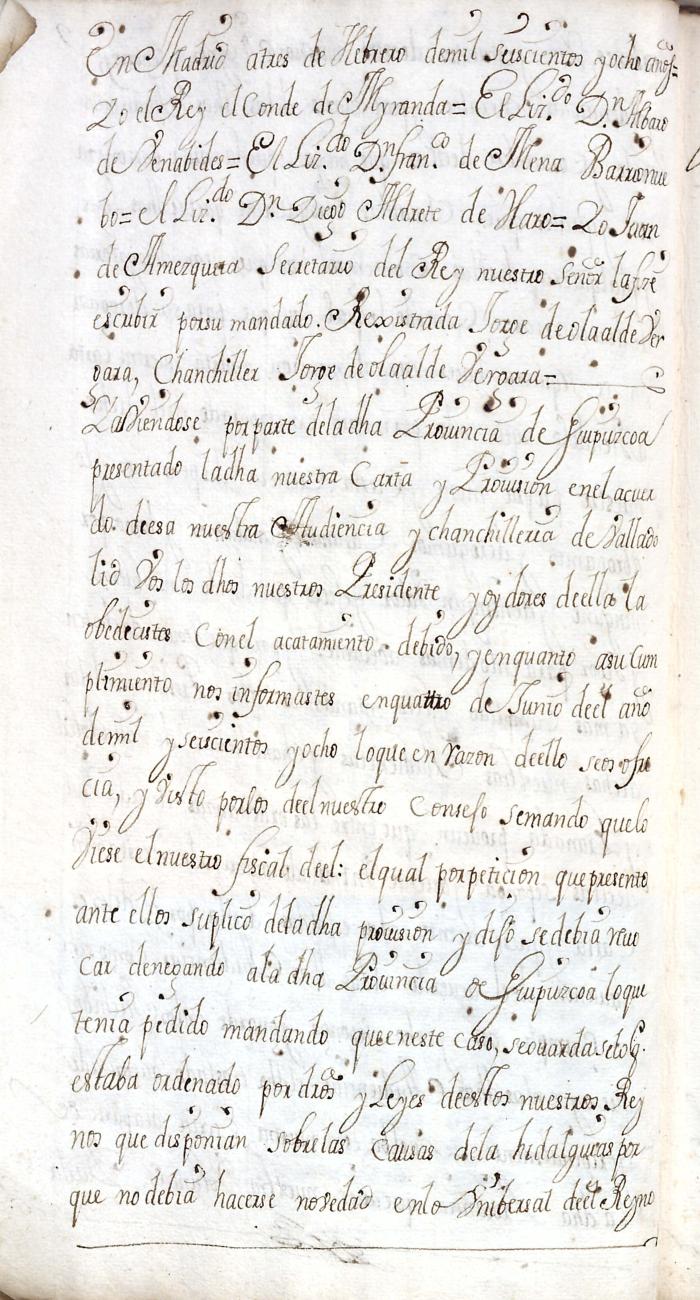 En Madrid atres de Hebrero demil seiscientos yocho años=
Yo el Rey el Conde de Myranda= El Liz.do D.n Albaro
de Venabides= El Liz.do D.n fran.co de Mena Barrionue
bo= el Liz.do D.n Diego Aldrete de Haro= Yo Juan
de Amezqueta Secretario del Rey nuestro Señor lafize
escribir porsu mandado. Rexistrada Jorge deolaalde Ver
gara, Chanchiller Jorge deolaalde Vergara=
YaViendose porparte deladha Prouincia de Guipuzcoa
presentado ladha nuestra Carta y Prouision enel acuer
do. deesa nuestra Audiencia y chanchilleria de Vallado
lid Vos los dhos nuestros Presidente y oydores deella la
obedecistes Conel acatamiento debido, y enquanto asu Cum
plimiento nos informastes enquattro de Junio deel año
demil y seiscientos yocho loque en razon deello seos ofre
cia, y Visto porlos deelnuestro Consejo semando quelo
Viese elnuestro fiscal deel: elqual porpeticion quepresento
ante ellos suplico deladha prouision y dijo sedebia reuo
car denegando aladha Prouincia de Guipuzcoa loque
tenia pedido mandando queeneste caso, seguardase loq.
estaba ordenado por dros y Leyes deestos nuestros Rey
nos que disponian sobrelas Causas dela hidalguias por
que nodebia hacerse noVedad enlo Vnibersal deel Reyno